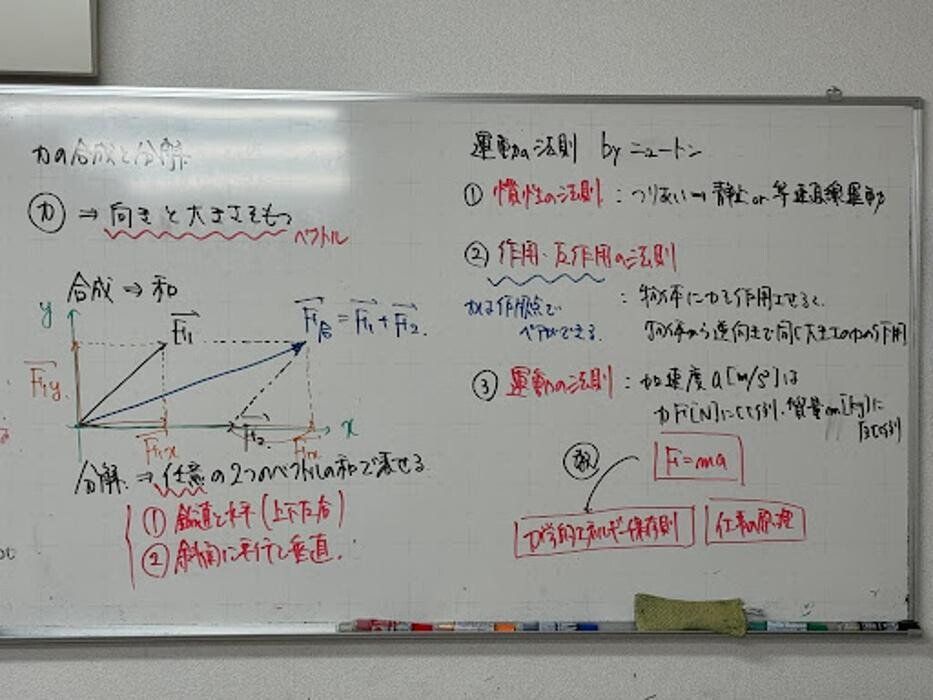 力の合成と分解
力 ⇒ 向きと大きさをもつ
ベクトル
合成 ⇒ 和
y
F1
F合 = F1 + F2.
F1y
F1x
F2
F1x
x
分解 ⇒ 任意の2つのベクトルの和で表せる
① 鉛直と水平 (上下左右)
② 斜面に平行と垂直.
運動の法則 by ニュートン
① 慣性の法則 : つりあい → 静止 or 等速直線運動
② 作用・反作用の法則
: 物体に力を作用させると、
物体から逆向きで同じ大きさの力が作用
力は作用点で
ペアができる.
③ 運動の法則 : 加速度 a[m/s²]は
力F[N]に比例し、質量m[kg]に
反比例
F=ma
力学的エネルギー保存則
仕事の原理